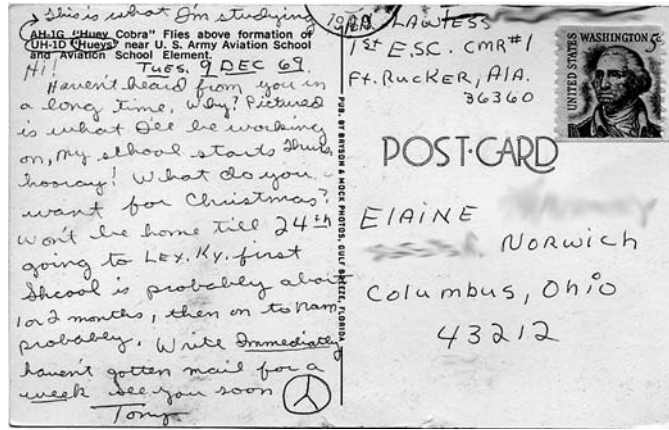 This is what I'm studying
AH-1G "Huey Cobra" Flies above formation of
UH-1D "Hueys" near U. S. Army Aviation School
and Aviation School Element.
Hi! TUES. 9 DEC 69.
Haven't heard from you in
a long time, Why? Pictured
is what I'll be working
on, my school starts Thurs,
hooray! What do you
want for Christmas?
Won't be home till 24th
going to LEX. Ky. first
Shcool is probably about
1 or 2 months, then on to Nam
probably. Write Immediatly
haven't gotten mail for a
week see you soon
Tony
PUB. BY BRYSON & MOCK PHOTOS, GULF BREEZE, FLORIDA
LAWTESS
1st E.S.C. CMR#1
Ft. Rucker, AlA.
36360
UNITED STATES WASHINGTON 5c
POST-CARD
ElAiNE
NORWich
Columbus, Ohio
43212